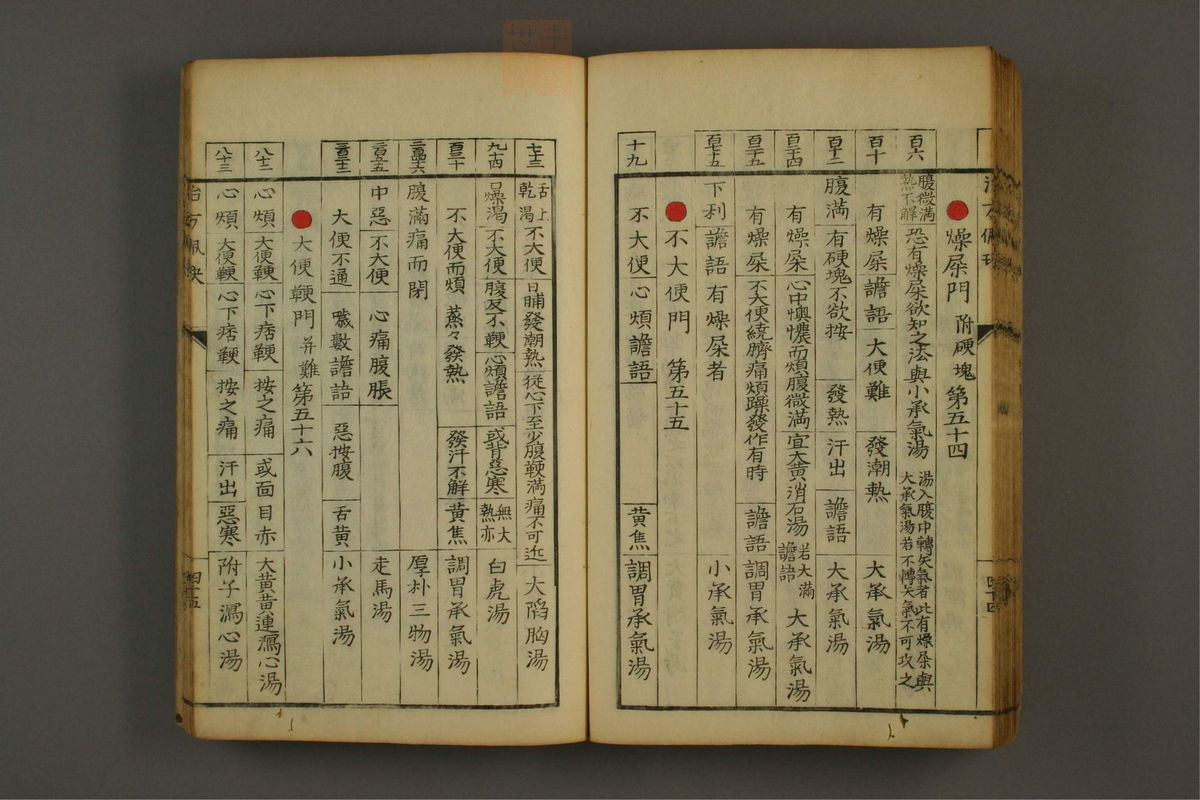 燥屎門 附硬塊 第五十四
百六 腹微滿熱不解 恐有燥屎欲知之法與小承氣湯 湯入腹中轉矢氣者此有燥屎與大承氣湯若不轉矢氣不可攻之
百十 有燥屎 譫語 大便難 發潮熱 大承氣湯
百十二 腹滿 有硬塊不欲按 發熱 汗出 譫語 大承氣湯
有燥屎 心中懊憹而煩腹微滿 宜大黄消石湯 若大滿譫語 大承氣湯
有燥屎 不大便繞臍痛煩躁發作有時 譫語 調胃承氣湯
下利 譫語 有燥屎者 小承氣湯
不大便門 第五十五
十九 不大便 心煩譫語 黄焦 調胃承氣湯
舌上乾渴 不大便 日晡發潮熱 從心下至少腹鞕滿痛不可近 大陷胸湯
九十四 口燥渴 不大便 腹反不鞕 心煩譫語 或背惡寒 無大熱亦 白虎湯
不大便而煩 蒸々發熱 發汗不解 黄焦 調胃承氣湯
腹滿痛而閉 厚朴三物湯
中惡 不大便 心痛腹脹 走馬湯
大便不通 噦數譫語 惡按腹 舌黄 小承氣湯
大便鞕門 并難 第五十六
八十二 心煩 大便鞕 心下痞鞕 按之痛 或面目赤 大黄黄連瀉心湯
八十三 心煩 大便鞕 心下痞鞕 按之痛 汗出 惡寒 附子瀉心湯
四十五